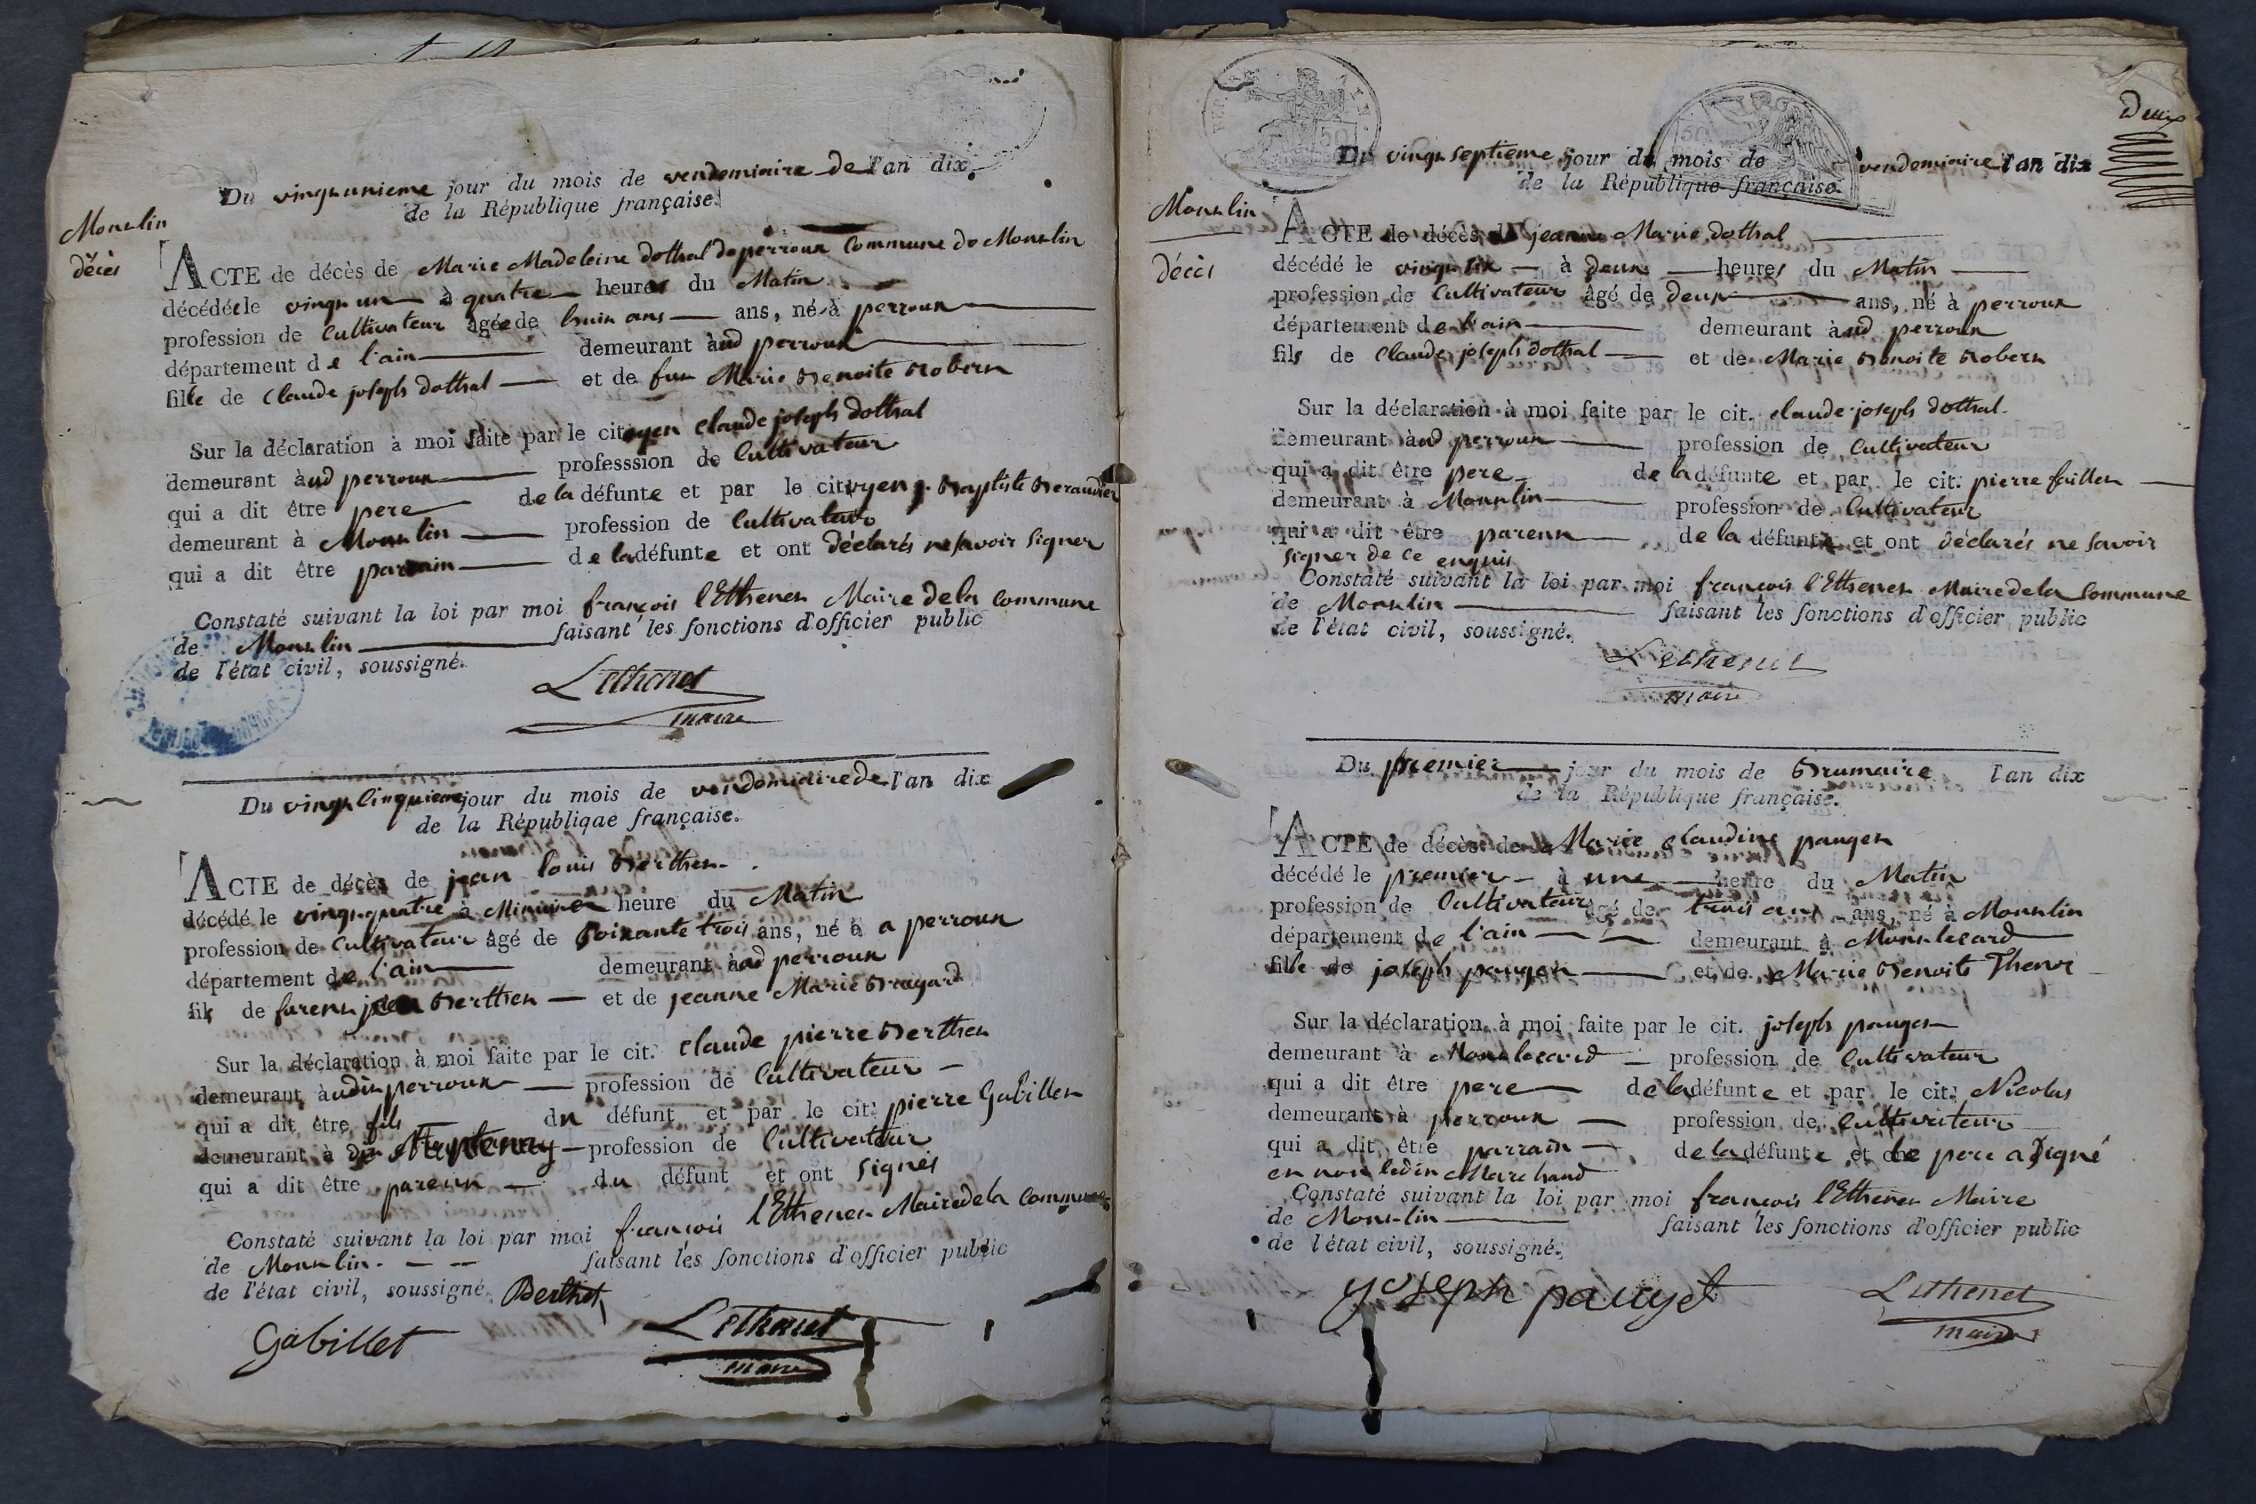 Du vingtunieme jour du mois de vendemiaire de l'an dix
de la République française.
Montlin
décès
ACTE de décès de Marie Madeleine dothal de perroux Commune de Montlin
décédée le vingt un à quatre heures du Matin
profession de Cultivateur âgée de huit ans ans, né à perroux
département de l'ain demeurant àud perroux
fille de Claude joseph dothal et de fue Marie Benoite Robert
Sur la déclaration à moi faite par le citoyen Claude joseph dothal
demeurant àud perroux professsion de Cultivateur
qui a dit être pere de la défunte et par le citoyen j. Baptiste Beraudier
demeurant à Montlin profession de Cultivateur
qui a dit être parrain de la défunte et ont déclarés ne savoir signer
Constaté suivant la loi par moi françois l'Ethenet Maire de la Commune
de Montlin faisant les fonctions d'officier public
de l'état civil, soussigné.
Lethenet
maire
Du vingt Cinquieme jour du mois de vendemiaire de l'an dix
de la Républiqae française.
ACTE de décès de jean louis Berthet
décédé le vingt quatre à Minuit heure du Matin
profession de Cultivateur âgé de Soixante trois ans, né à a perroux
département de l'ain demeurant àud perroux
fils de Berthet et de jeanne Marie
Sur la déclaration à moi faite par le cit. Claude pierre Berthet
demeurant àudit perroux profession de Cultivateur
qui a dit être fils du défunt et par le cit. pierre Gabillet
demeurant à profession de Cultivateur
qui a dit être parent du défunt et ont signés
Constaté suivant la loi par moi françois l'Ethenet Maire de la Commune
de Montlin faisant les fonctions d'officier public
de l'état civil, soussigné.
Berthet
Gabillet
Lethenet
maire
Deux
Du vingt septieme jour du mois de vendemiaire l'an dix
de la République française.
Montlin
décès
ACTE de décès de jeanne Marie dothal
décédé le vingt six à deux heures du Matin
profession de Cultivateur âgé de deux ans, né à perroux
département de l'ain demeurant àud perroux
fils de Claude joseph dothal et de Marie Benoite Robert
Sur la déclaration à moi faite par le cit. Claude joseph dothal
demeurant àud perroux profession de Cultivateur
qui a dit être pere de la défunte et par le cit. pierre faillet
demeurant à Montlin profession de Cultivateur
qui a dit être parent de la défunte et ont déclarés ne savoir
signer de ce enquis
Constaté suivant la loi par moi françois l'Ethenet Maire de la Commune
de Montlin faisant les fonctions d'officier public
de l'état civil, soussigné.
Lethenet
maire
Du premier jour du mois de Brumaire l'an dix
de la République française.
ACTE de décès de Marie Claudine pauget
décédé le premier à une heure du Matin
profession de Cultivateur âgé de trois ans ans, né à Montlin
département de l'ain demeurant à Montlecard
fille de joseph pauget et de Marie Benoite
Sur la déclaration à moi faite par le cit. joseph pauget
demeurant à Montlecard profession de Cultivateur
qui a dit être pere de la défunte et par le cit. Nicolas
demeurant à perroux profession de Cultivateur
qui a dit être parrain de la défunte et le pere a Signé
et non ledit Marchand
Constaté suivant la loi par moi françois l'Ethenet Maire
de Montlin faisant les fonctions d'officier public
de l'état civil, soussigné.
yoseph pauget
Lethenet
maire